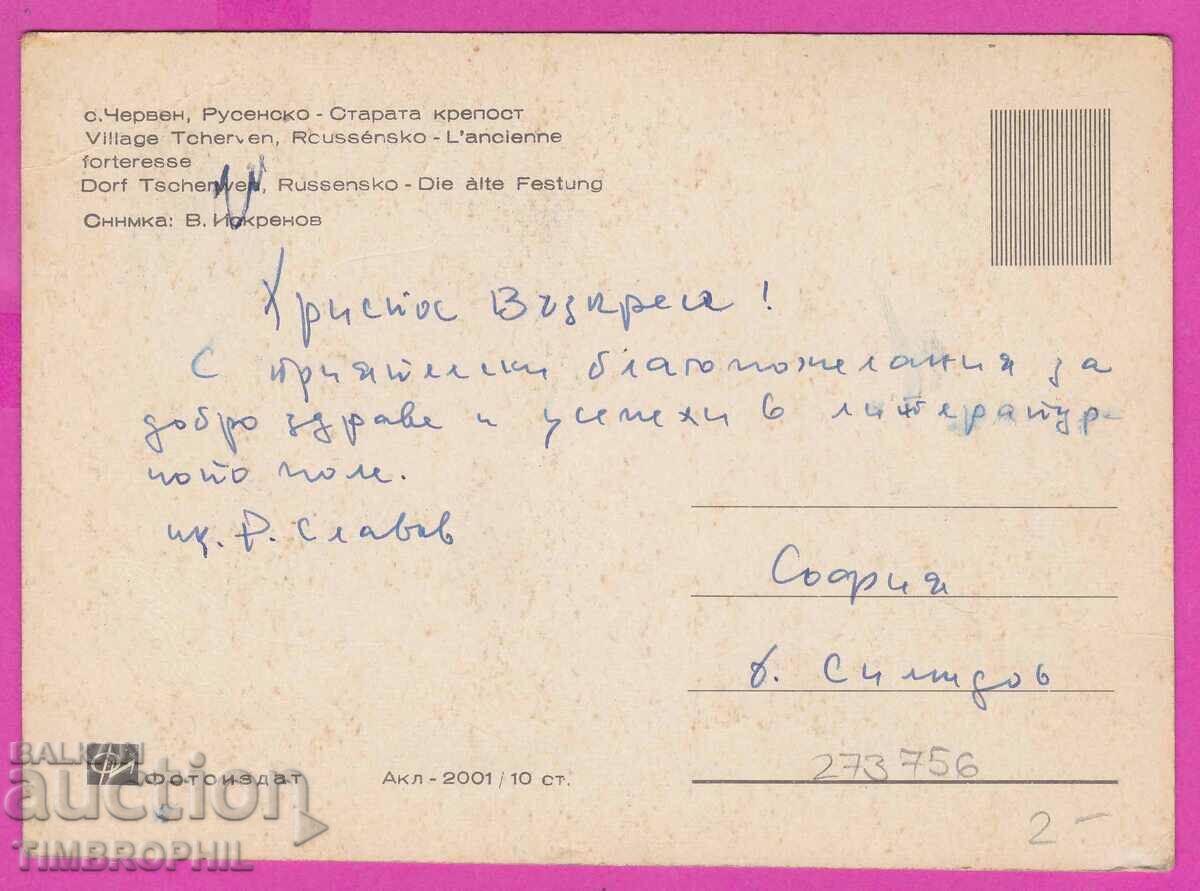 с.Червен, Русенско - Старата крепост
Village Tcherven, Roussénsko - L'ancienne
forteresse
Dorf Tscherwen, Russensko - Die alte Festung
Снимка: В. Искренов
Христос Възкресе!
С приятелски благопожелания за
добро здраве и успехи в литератур-
ното поле.
Славов
София
Фотоиздат
Акл - 2001 / 10 ст.
273756
2 -
BALKAN
auction
TIMBROPHIL